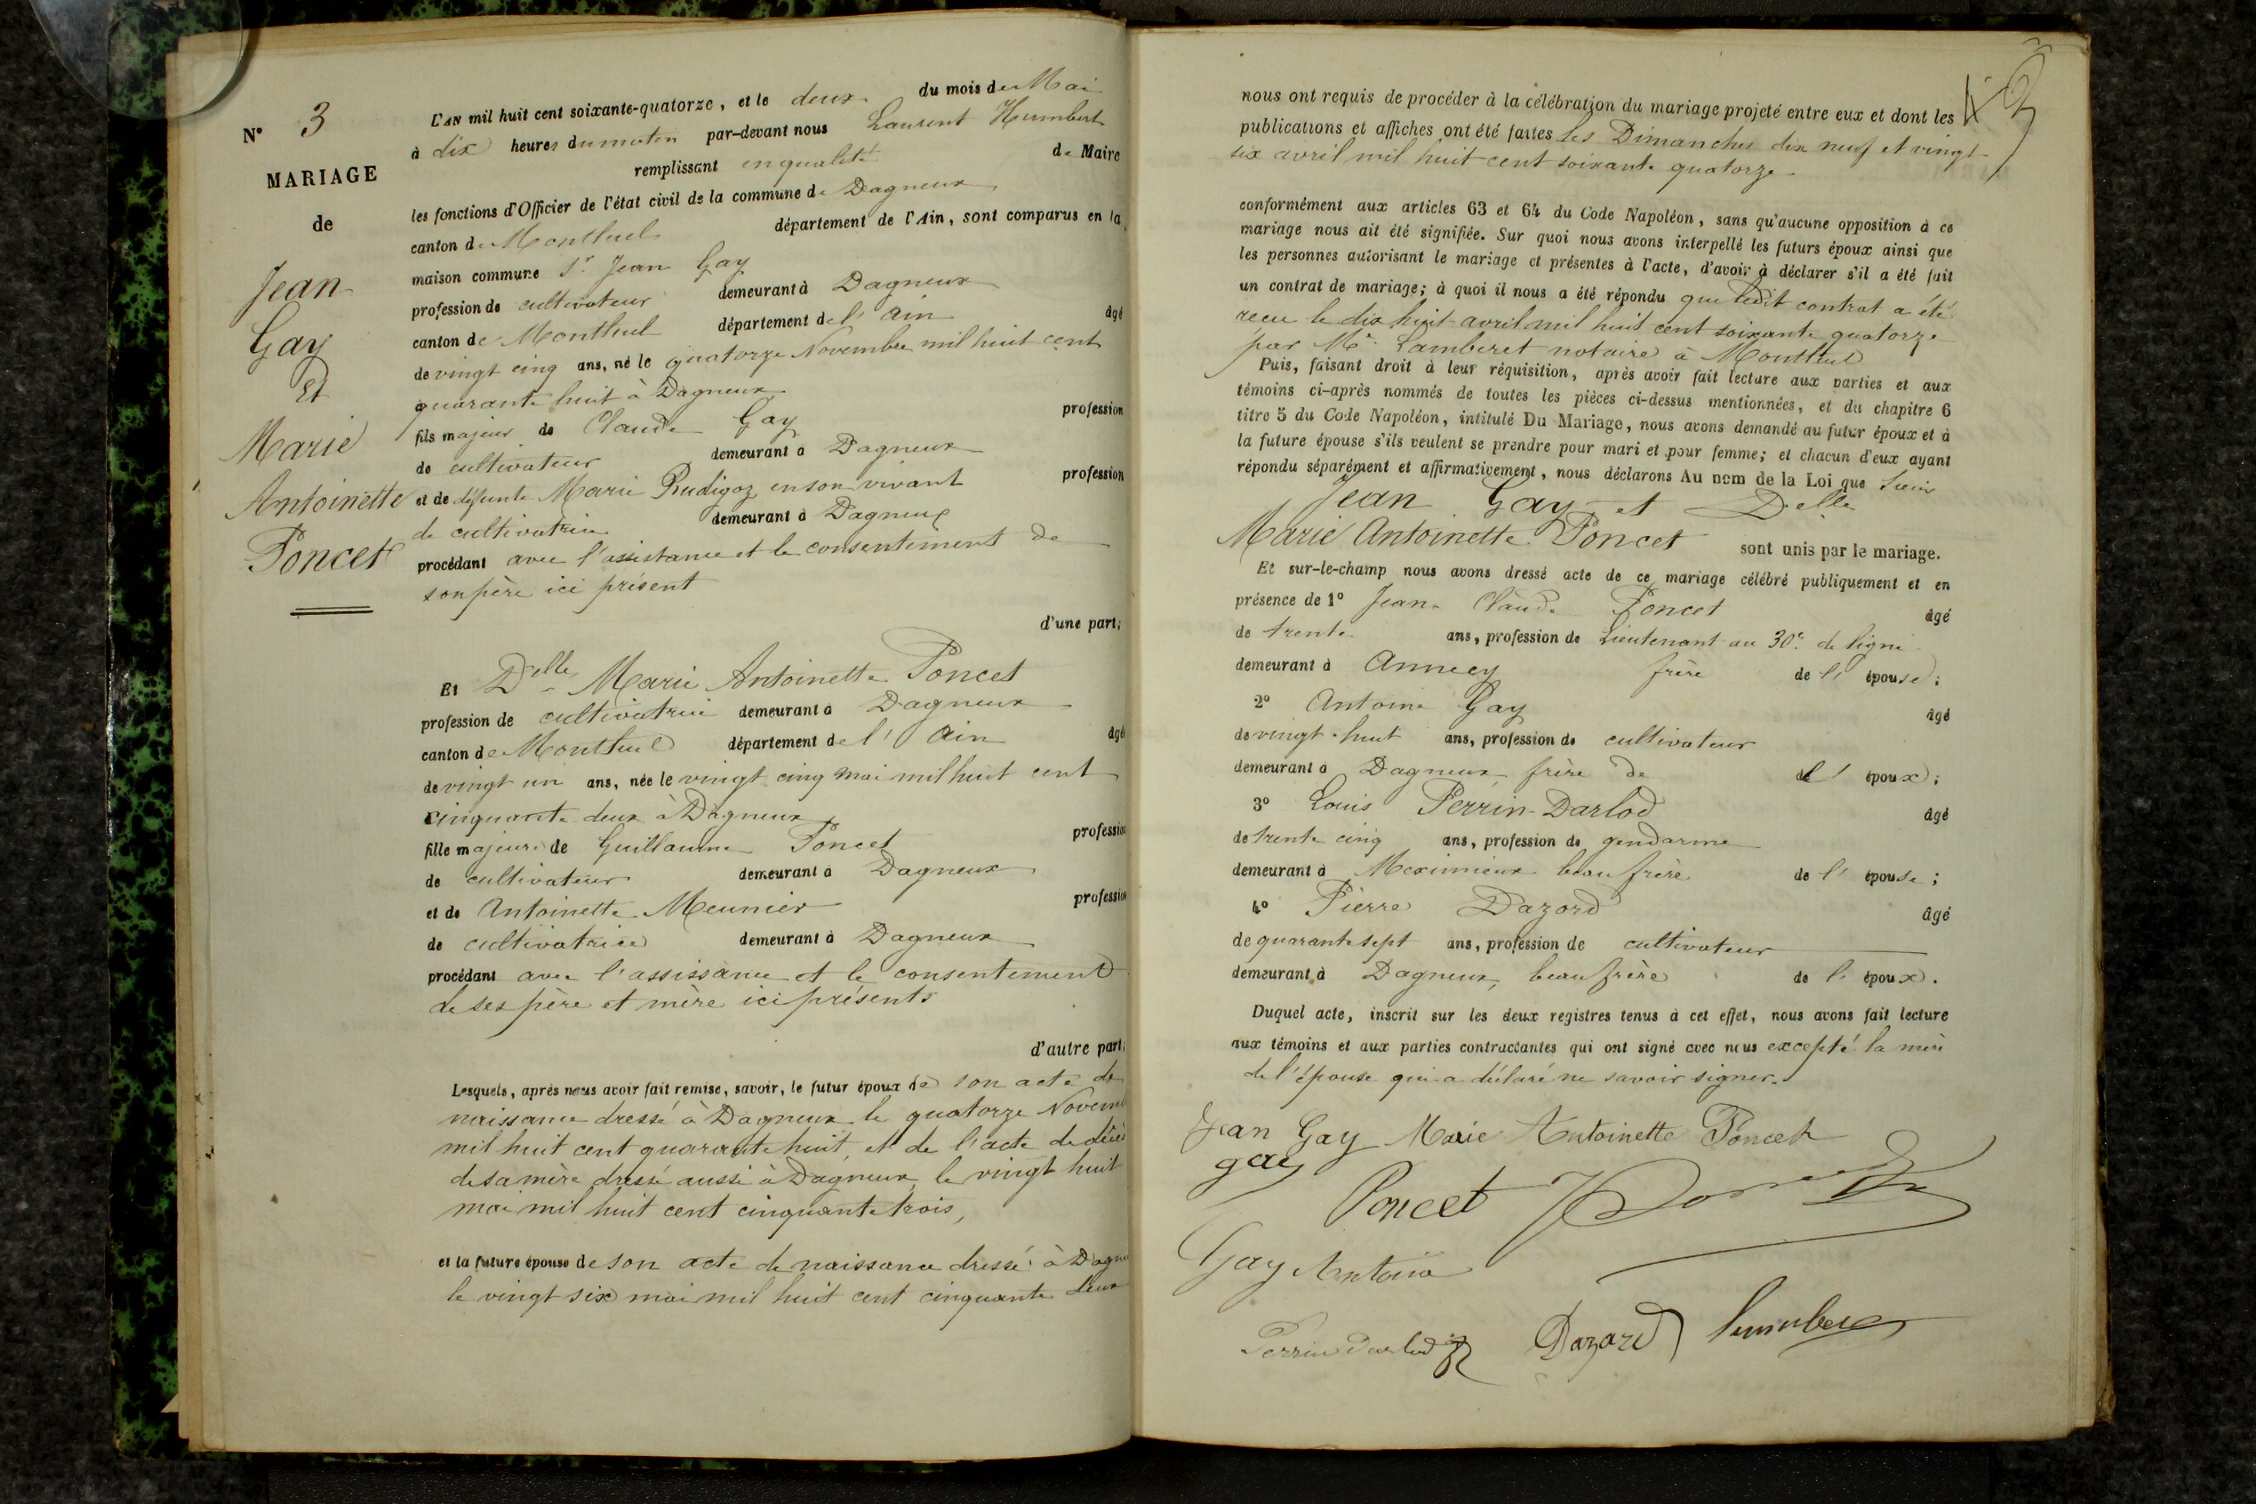 N° 3
MARIAGE
de
Jean
Gay
Et
Marie
Antoinette
Poncet
L'AN mil huit cent soixante-quatorze, et le deux du mois de Mai
à dix heures du matin par-devant nous Laurent Humbert
remplissant en qualité de Maire
les fonctions d'Officier de l'état civil de la commune de Dagneux
canton de Montluel département de l'Ain, sont comparus en la
maison commune Sr Jean Gay
profession de cultivateur demeurant à Dagneux
canton de Montluel département de l'Ain âgé
de vingt cinq ans, né le quatorze Novembre mil huit cent
quarante huit à Dagneux
fils majeur de Claude Gay profession
de cultivateur demeurant à Dagneux
et de défunte Marie Rudigoz en son vivant profession
de cultivatrice demeurant à Dagneux
procédant avec l'assistance et le consentement de
son père ici présent
d'une part;
Et Delle Marie Antoinette Poncet
profession de cultivatrice demeurant à Dagneux
canton de Montluel département de l'Ain âgée
de vingt un ans, née le vingt cinq mai mil huit cent
cinquante deux à Dagneux
fille majeure de Guillaume Poncet profession
de cultivateur demeurant à Dagneux
et de Antoinette Meunier profession
de cultivatrice demeurant à Dagneux
procédant avec l'assissance et le consentement
de ses père et mère ici présents
d'autre part;
Lesquels, après nous avoir fait remise, savoir, le futur époux de son acte de
naissance dressé à Dagneux le quatorze Novem
mil huit cent quarante huit, et de l'acte de décès
de sa mère dressé aussi à Dagneux le vingt huit
mai mil huit cent cinquante trois,
et la future épouse de son acte de naissance dressé à Dagne
le vingt six mai mil huit cent cinquante deux
nous ont requis de procéder à la célébration du mariage projeté entre eux et dont les
publications et affiches ont été faites les Dimanches dix neuf et vingt-
six avril mil huit cent soixante quatorze
conformément aux articles 63 et 64 du Code Napoléon, sans qu'aucune opposition à ce
mariage nous ait été signifiée. Sur quoi nous avons interpellé les futurs époux ainsi que
les personnes autorisant le mariage et présentes à l'acte, d'avoir à déclarer s'il a été fait
un contrat de mariage; à quoi il nous a été répondu que ledit contrat a été
reçu le dix huit avril mil huit cent soixante quatorze
par Me Lamberet notaire à Montluel
Puis, faisant droit à leur réquisition, après avoir fait lecture aux parties et aux
témoins ci-après nommés de toutes les pièces ci-dessus mentionnées, et du chapitre 6
titre 5 du Code Napoléon, intitulé Du Mariage, nous avons demandé au futur époux et à
la future épouse s'ils veulent se prendre pour mari et pour femme; et chacun d'eux ayant
répondu séparément et affirmativement, nous déclarons Au nom de la Loi que Sieur
Jean Gay et Delle
Marie Antoinette Poncet sont unis par le mariage.
Et sur-le-champ nous avons dressé acte de ce mariage célébré publiquement et en
présence de 1° Jean Claude Poncet âgé
de trente ans, profession de Lieutenant au 30e de ligne
demeurant à Annecy frère de l'épouse;
2° Antoine Gay âgé
de vingt-huit ans, profession de cultivateur
demeurant à Dagneux frère de de l'époux;
3° Louis Perrin-Darlod âgé
de trente cinq ans, profession de gendarme
demeurant à Meximieux beau frère de l'épouse;
4° Pierre Dazord âgé
de quarante sept ans, profession de cultivateur
demeurant à Dagneux, beau frère de l'époux.
Duquel acte, inscrit sur les deux registres tenus à cet effet, nous avons fait lecture
aux témoins et aux parties contractantes qui ont signé avec nous excepté la mère
de l'épouse qui a déclaré ne savoir signer.
Jean Gay Marie Antoinette Poncet
gay
Poncet
Gay Antoine
Perrin Darlod Dazord humbert